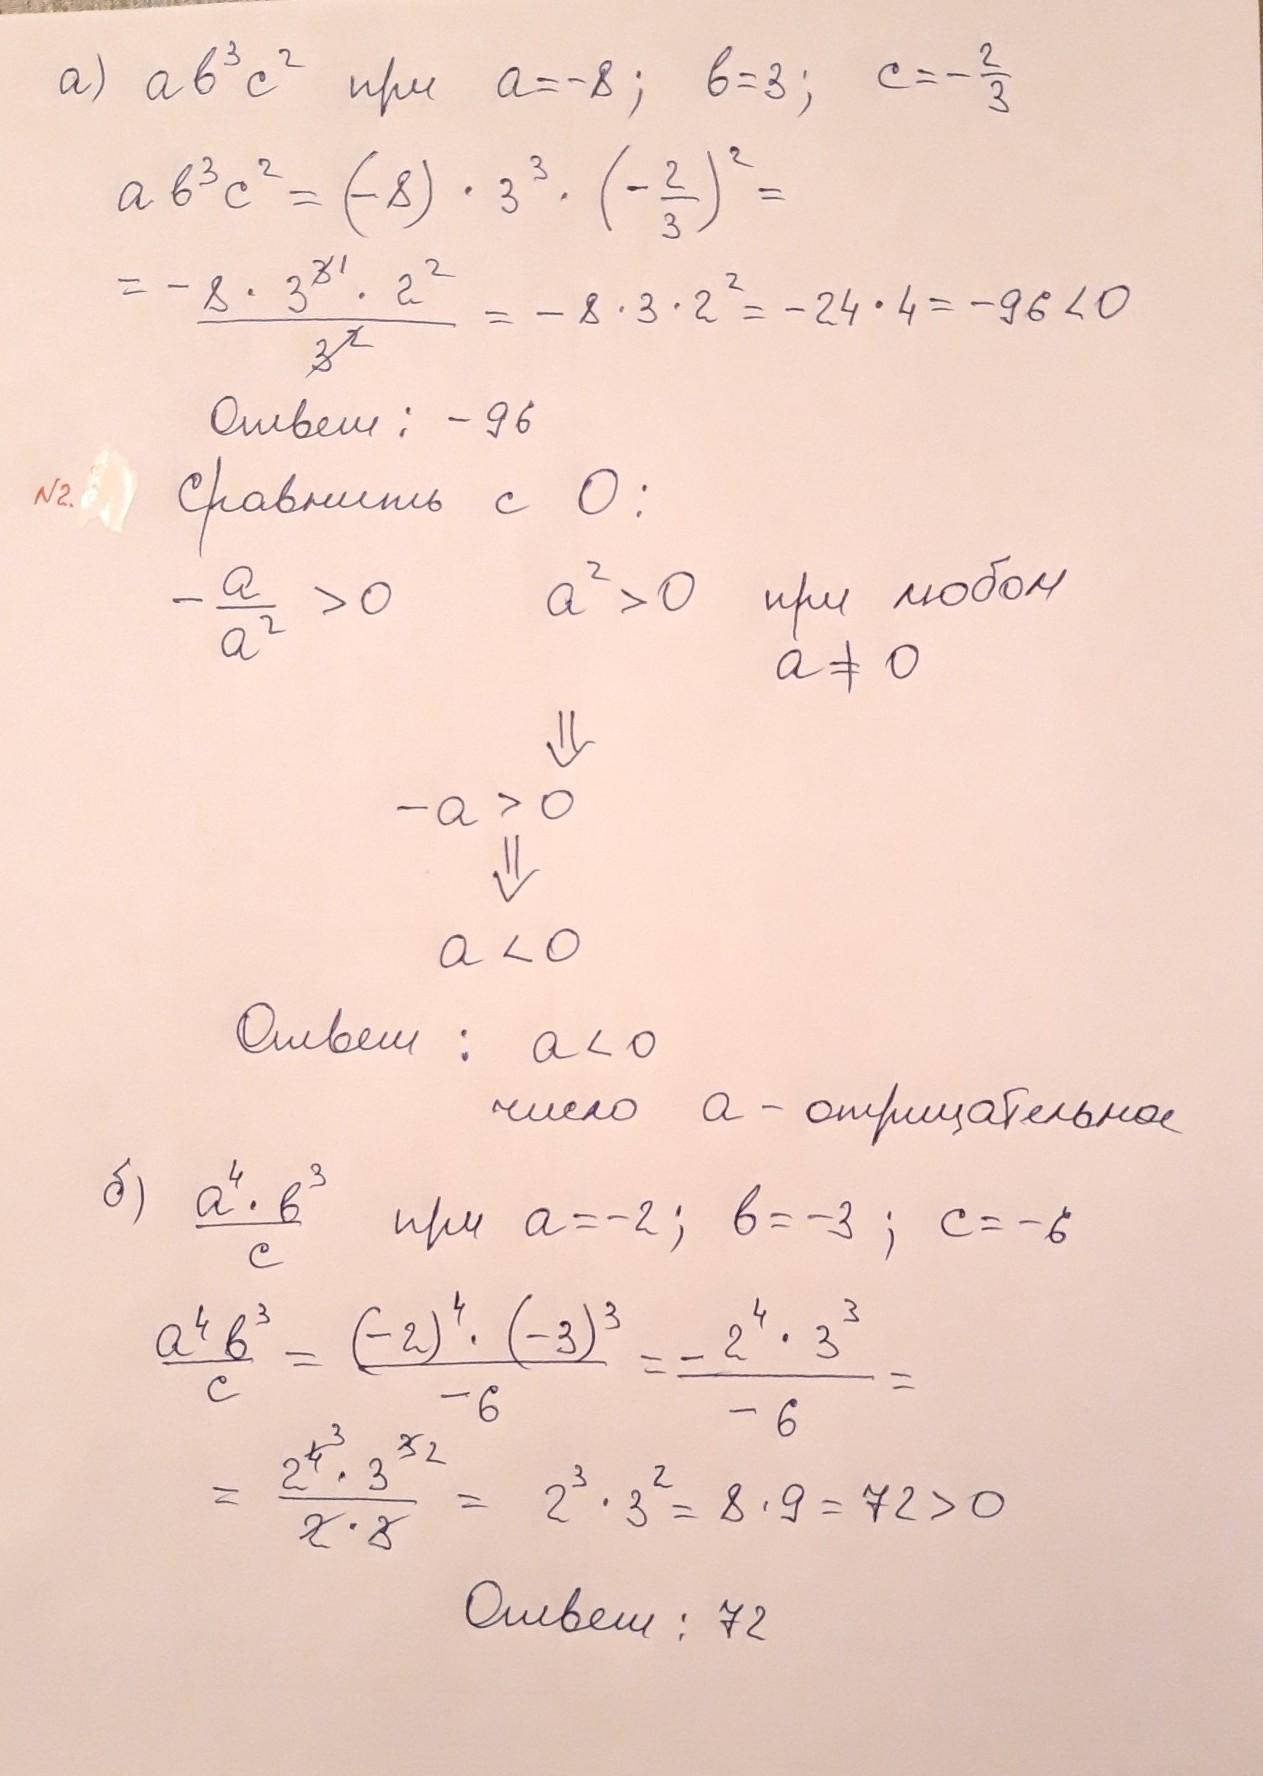 а) ав³с² при а=-8; в=3; с=-2/3
ав³с² = (-8) · 3³ · (-2/3)² =
= -8 · 3³ ¹ · 2² / 3² = -8 · 3 · 2² = -24 · 4 = -96 < 0
Ответ: -96
№2. Сравнить с 0:
-а/а² > 0 а² > 0 при любом
а ≠ 0
⇓
-а > 0
⇓
а < 0
Ответ: а < 0
число а - отрицательное
б) а⁴ · в³ / с при а=-2; в=-3; с=-6
а⁴в³ / с = (-2)⁴ · (-3)³ / -6 = -2⁴ · 3³ / -6 =
= 2⁴ ³ · 3³ ² / 2 · 3 = 2³ · 3² = 8 · 9 = 72 > 0
Ответ: 72